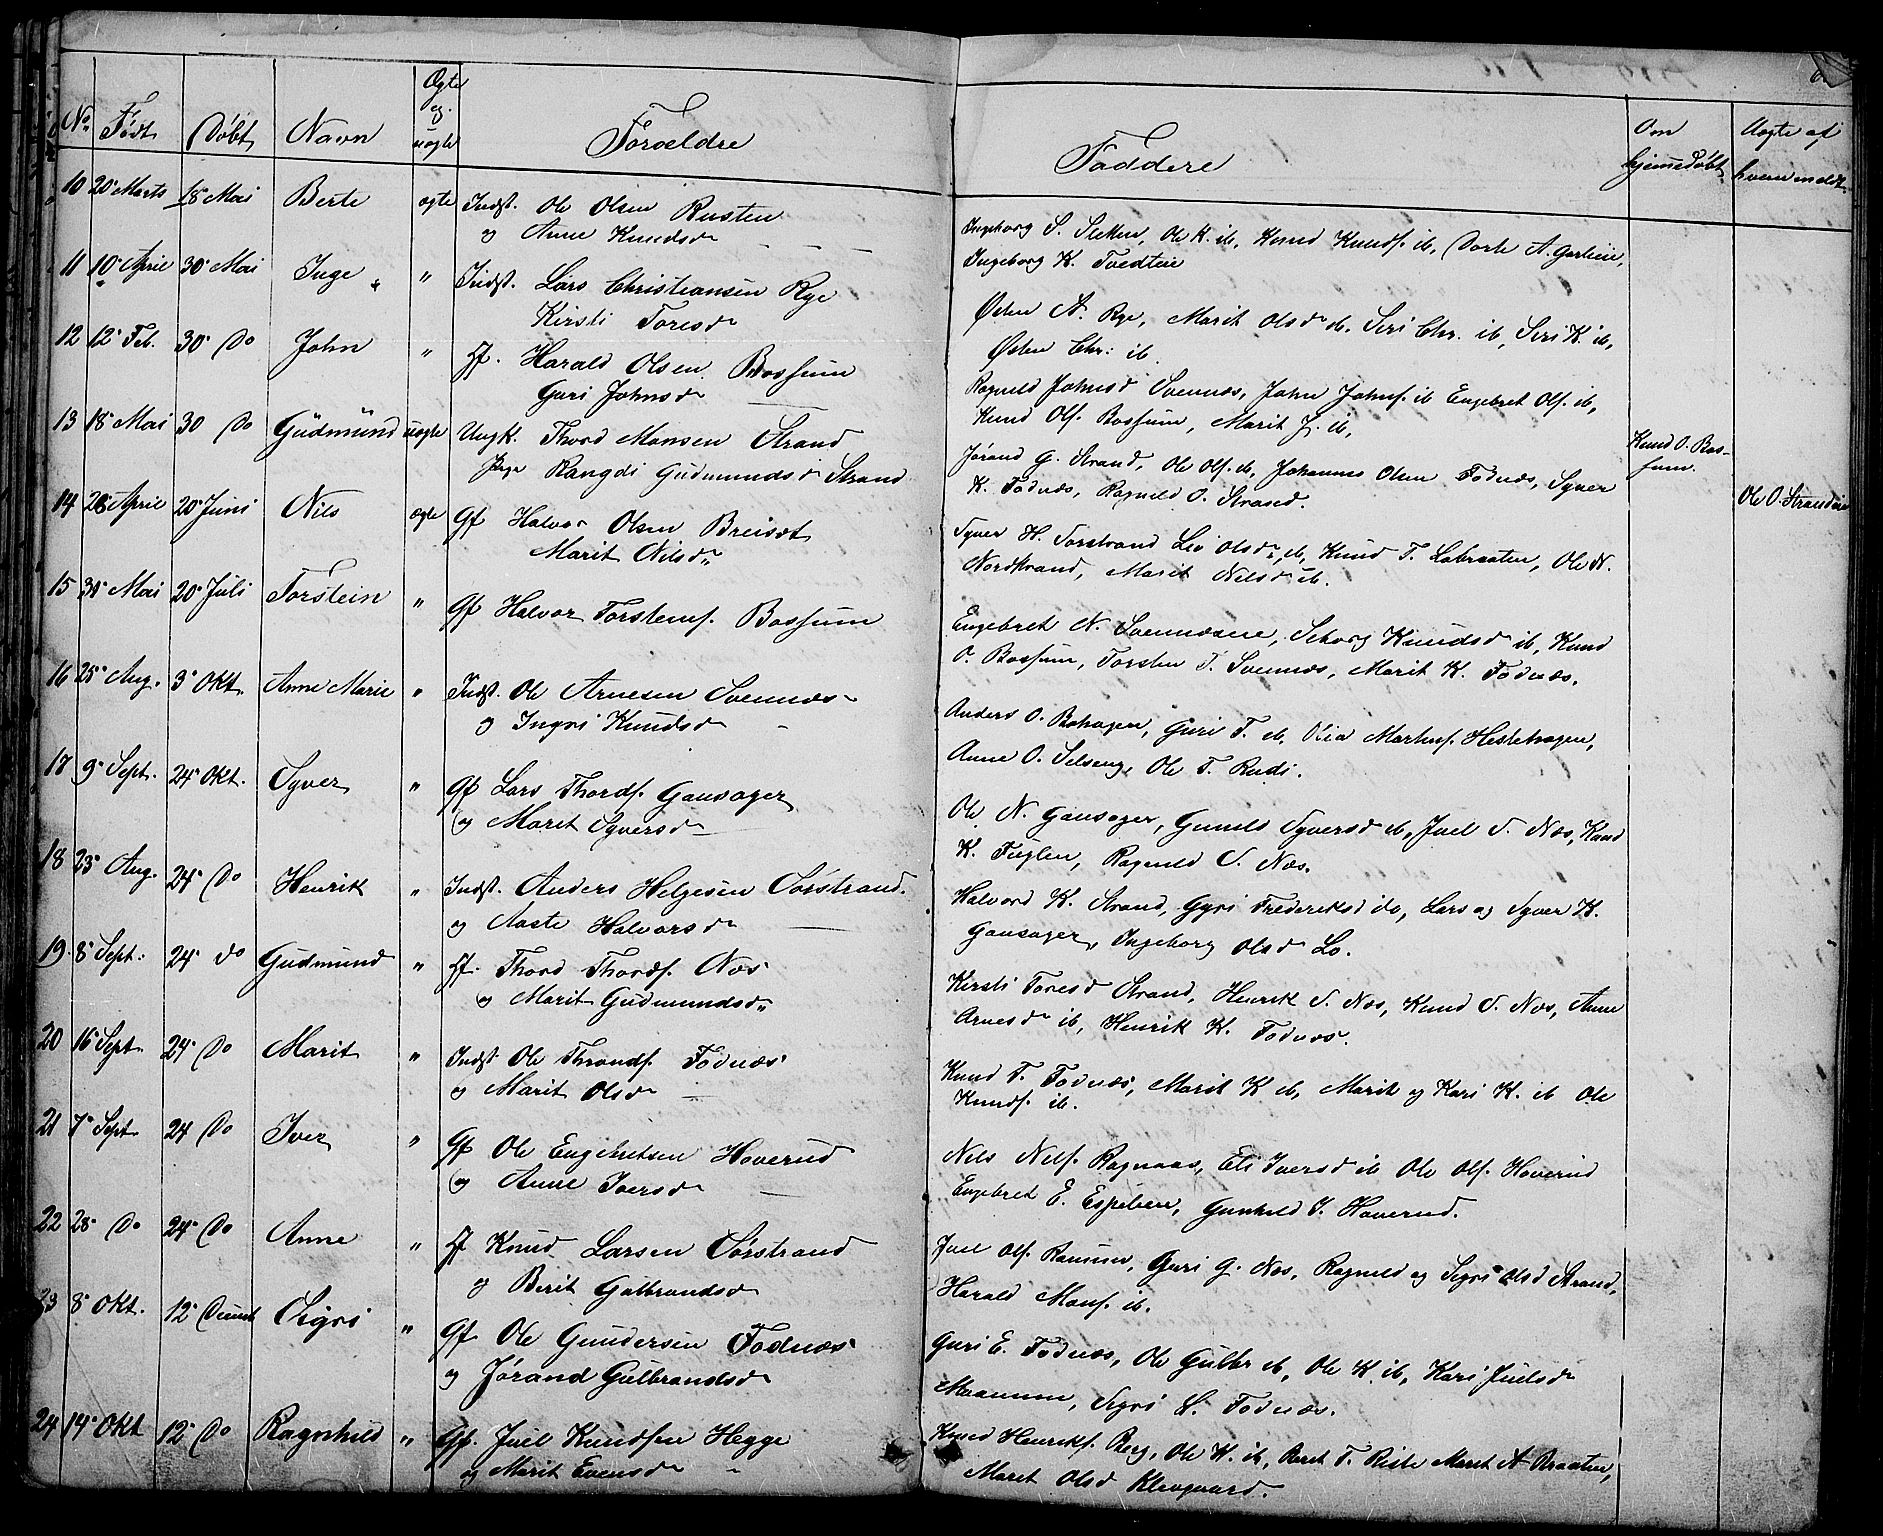 No. Født Døbt Navn Ægte og uægte Forældre Faddere Om hjemmedøbt Uægte af hvem meldt
10 20 Marts 18 Mai Berte ægte Indst. Ole Olsen Rusten
og Anne Knudsd
Ingeborg K. Tvedten
11 10 April 30 Mai Inge " Indst. Lars Christiansen Rye
Kirsti Toresd
Østen A. Rye, Marit Olsd ib, Siri Chr. ib, Siri K. ib,
Østen Chr. ib.
12 12 Feb. 30 Do John " Harald Olsen Bossum
Guri Johnsd
Ragnild Johnsd Svennæs, John Johns. ib Engebret Ols. ib,
Knud Ols. Bossum, Marit J. ib,
13 18 Mai 30 Do Gudmund uægte Ungk. Thord Monsen Strand
Pige Rangdi Gudmundsd Strand
Jørand G. Strand, Ole Ols. ib, Johannes Olsen Fodnæs, Syver
K. Fodnæs, Ragnild O. Strand.
Knud O. Bossum.
Ole O. Strandeie
14 26 April 20 Juni Nils ægte Gf Halvor Olsen Breisæt
Marit Nilsd
Syver H. Sørstrand Liv Olsd ib, Knud T. Løbraaten, Ole N.
Nordstrand, Marit Nilsd ib.
15 30 Mai 20 Juli Torstein " Gf Halvor Torstens. Bossum
O. Bossum, Torsten T. Svennæs, Marit K. Fodnæs.
16 25 Aug. 3 Okt. Anne Marie " Indst. Ole Arnesen Svennæs
og Ingri Knudsd
Anders O. Bahagen, Guri T. ib,
Anne O. Selseng, Ole T. Rudi.
17 9 Sept. 24 Okt. Syver " Gf Lars Thords. Gausager
og Marit Syversd
Ole N. Gausager, Gunild Syversd ib, Juel S. Næs, Knud
K. Fuglen, Ragnild S. Næs.
18 23 Aug. 24 Do Henrik " Indst. Anders Helgesen Sørstrand.
og Aaste Halvorsd
Halvord K. Strand, Gyri Frederiksd do, Lars og Syver K.
Gausager, Ingeborg Olsd Lo.
19. 8 Sept. 24 do Gudmund " Thord Thords. Næs
og Marit Gudmundsd
Kirsti Toresd Strand, Henrik S. Næs, Knud S. Næs, Anne
Arnesd ib, Henrik K. Fodnæs.
20 16 Sept. 24 Do Marit " Indst Ole Thronds. Fodnæs
og Marit Olsd
Knud T. Fodnæs, Marit K ib, Marit og Kari K. ib Ole
Knuds. ib.
21 7 Sept 24 Do Iver " Gf Ole Engebretsen Haverud
og Anne Iversd
Nils Nils. Ragnaas, Eli Iversd ib Ole Ols. Haverud
Engebret E. Espelien, Gunhild I. Haverud.
22 28 Do 24 Do Anne " Knud Larsen Sørstrand
og Berit Gulbrandsd
Guri G. Næs, Ragnild og Sigri Olsd Strand,
Harald Mons. ib.
23 8 Okt. 12 Decemb Sigri " Gf Ole Gundersen Fodnæs
og Jørand Gulbrandsd
Guri E. Fodnæs, Ole Gulbr ib, Ole K. ib, Kari Juelsd
Sigri S. Fodnæs.
24 14 Okt 12 Do Ragnhild " Gf. Juel Knudsen Hegge
og Marit Evensd
Knud Henriks. Berg, Ole K. ib, Berit T. Riste Marit A Braaten,
Marit Olsd Klevgaard.